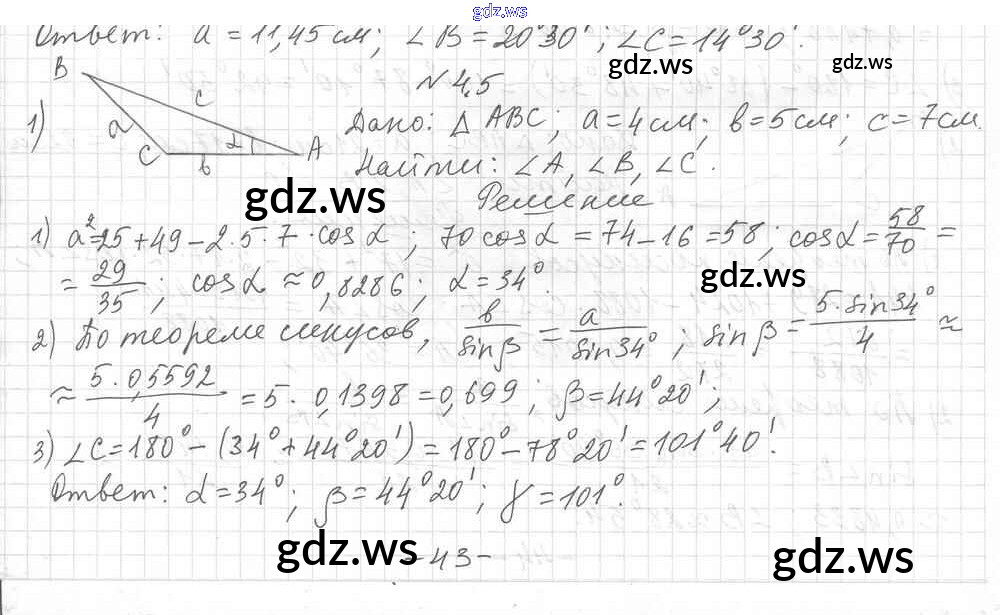 gdz.ws
Ответ: a = 11,45 см; ∠B = 20°30'; ∠C = 14°30'.
gdz.ws gdz.ws
N 4,5
1) B a c C α A b
Дано: △ ABC; a = 4 см; b = 5 см; c = 7 см.
Найти: ∠A, ∠B, ∠C.
gdz.ws
Решение
1) a² = 25 + 49 - 2·5·7·cos α; 70 cos α = 74 - 16 = 58; cos α = 58/70 =
= 29/35; cos α ≈ 0,8286; α = 34°.
gdz.ws
2) По теореме синусов, b/sin β = a/sin 34°; sin β = 5·sin 34°/4 ≈
≈ 5·0,5592/4 = 5·0,1398 = 0,699; β = 44°20';
3) ∠C = 180° - (34° + 44°20') = 180° - 78°20' = 101°40'.
Ответ: α = 34°; β = 44°20'; γ = 101°.
gdz.ws - 43 - gdz.ws